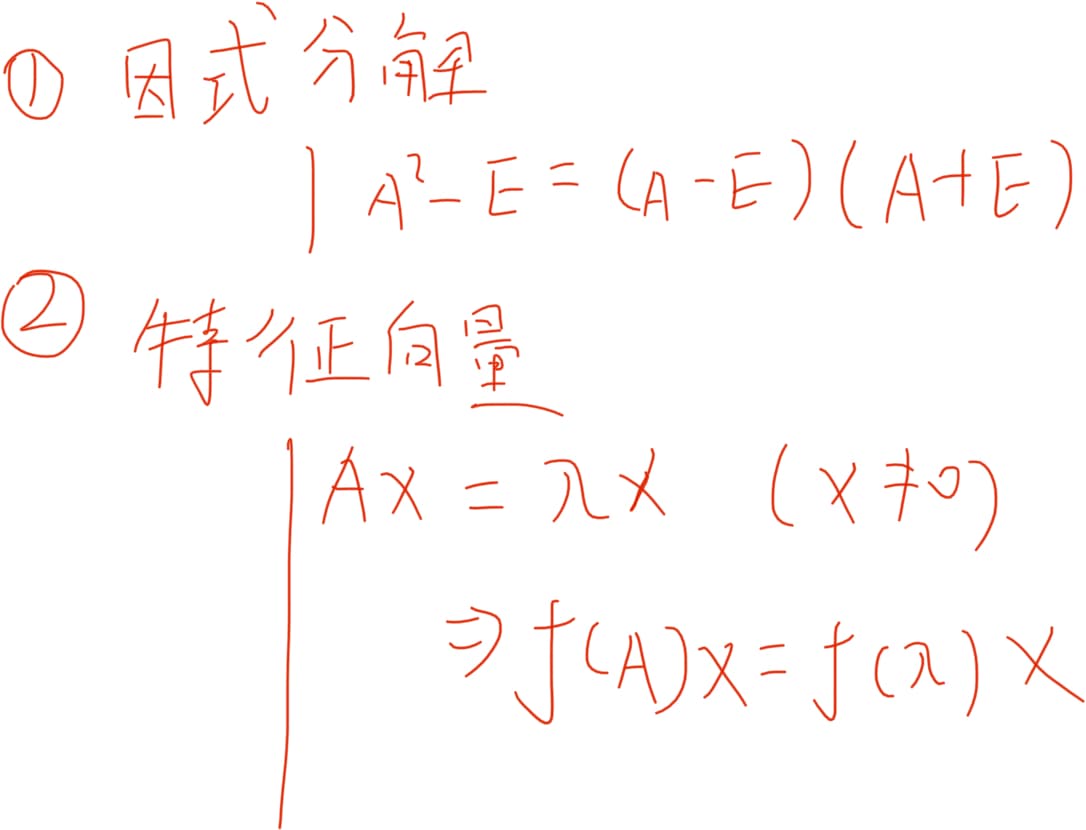 ① 因式分解
A²-E=(A-E)(A+E)
② 特征向量
Ax = λx (x≠0)
⇒ f(A)x = f(λ)x